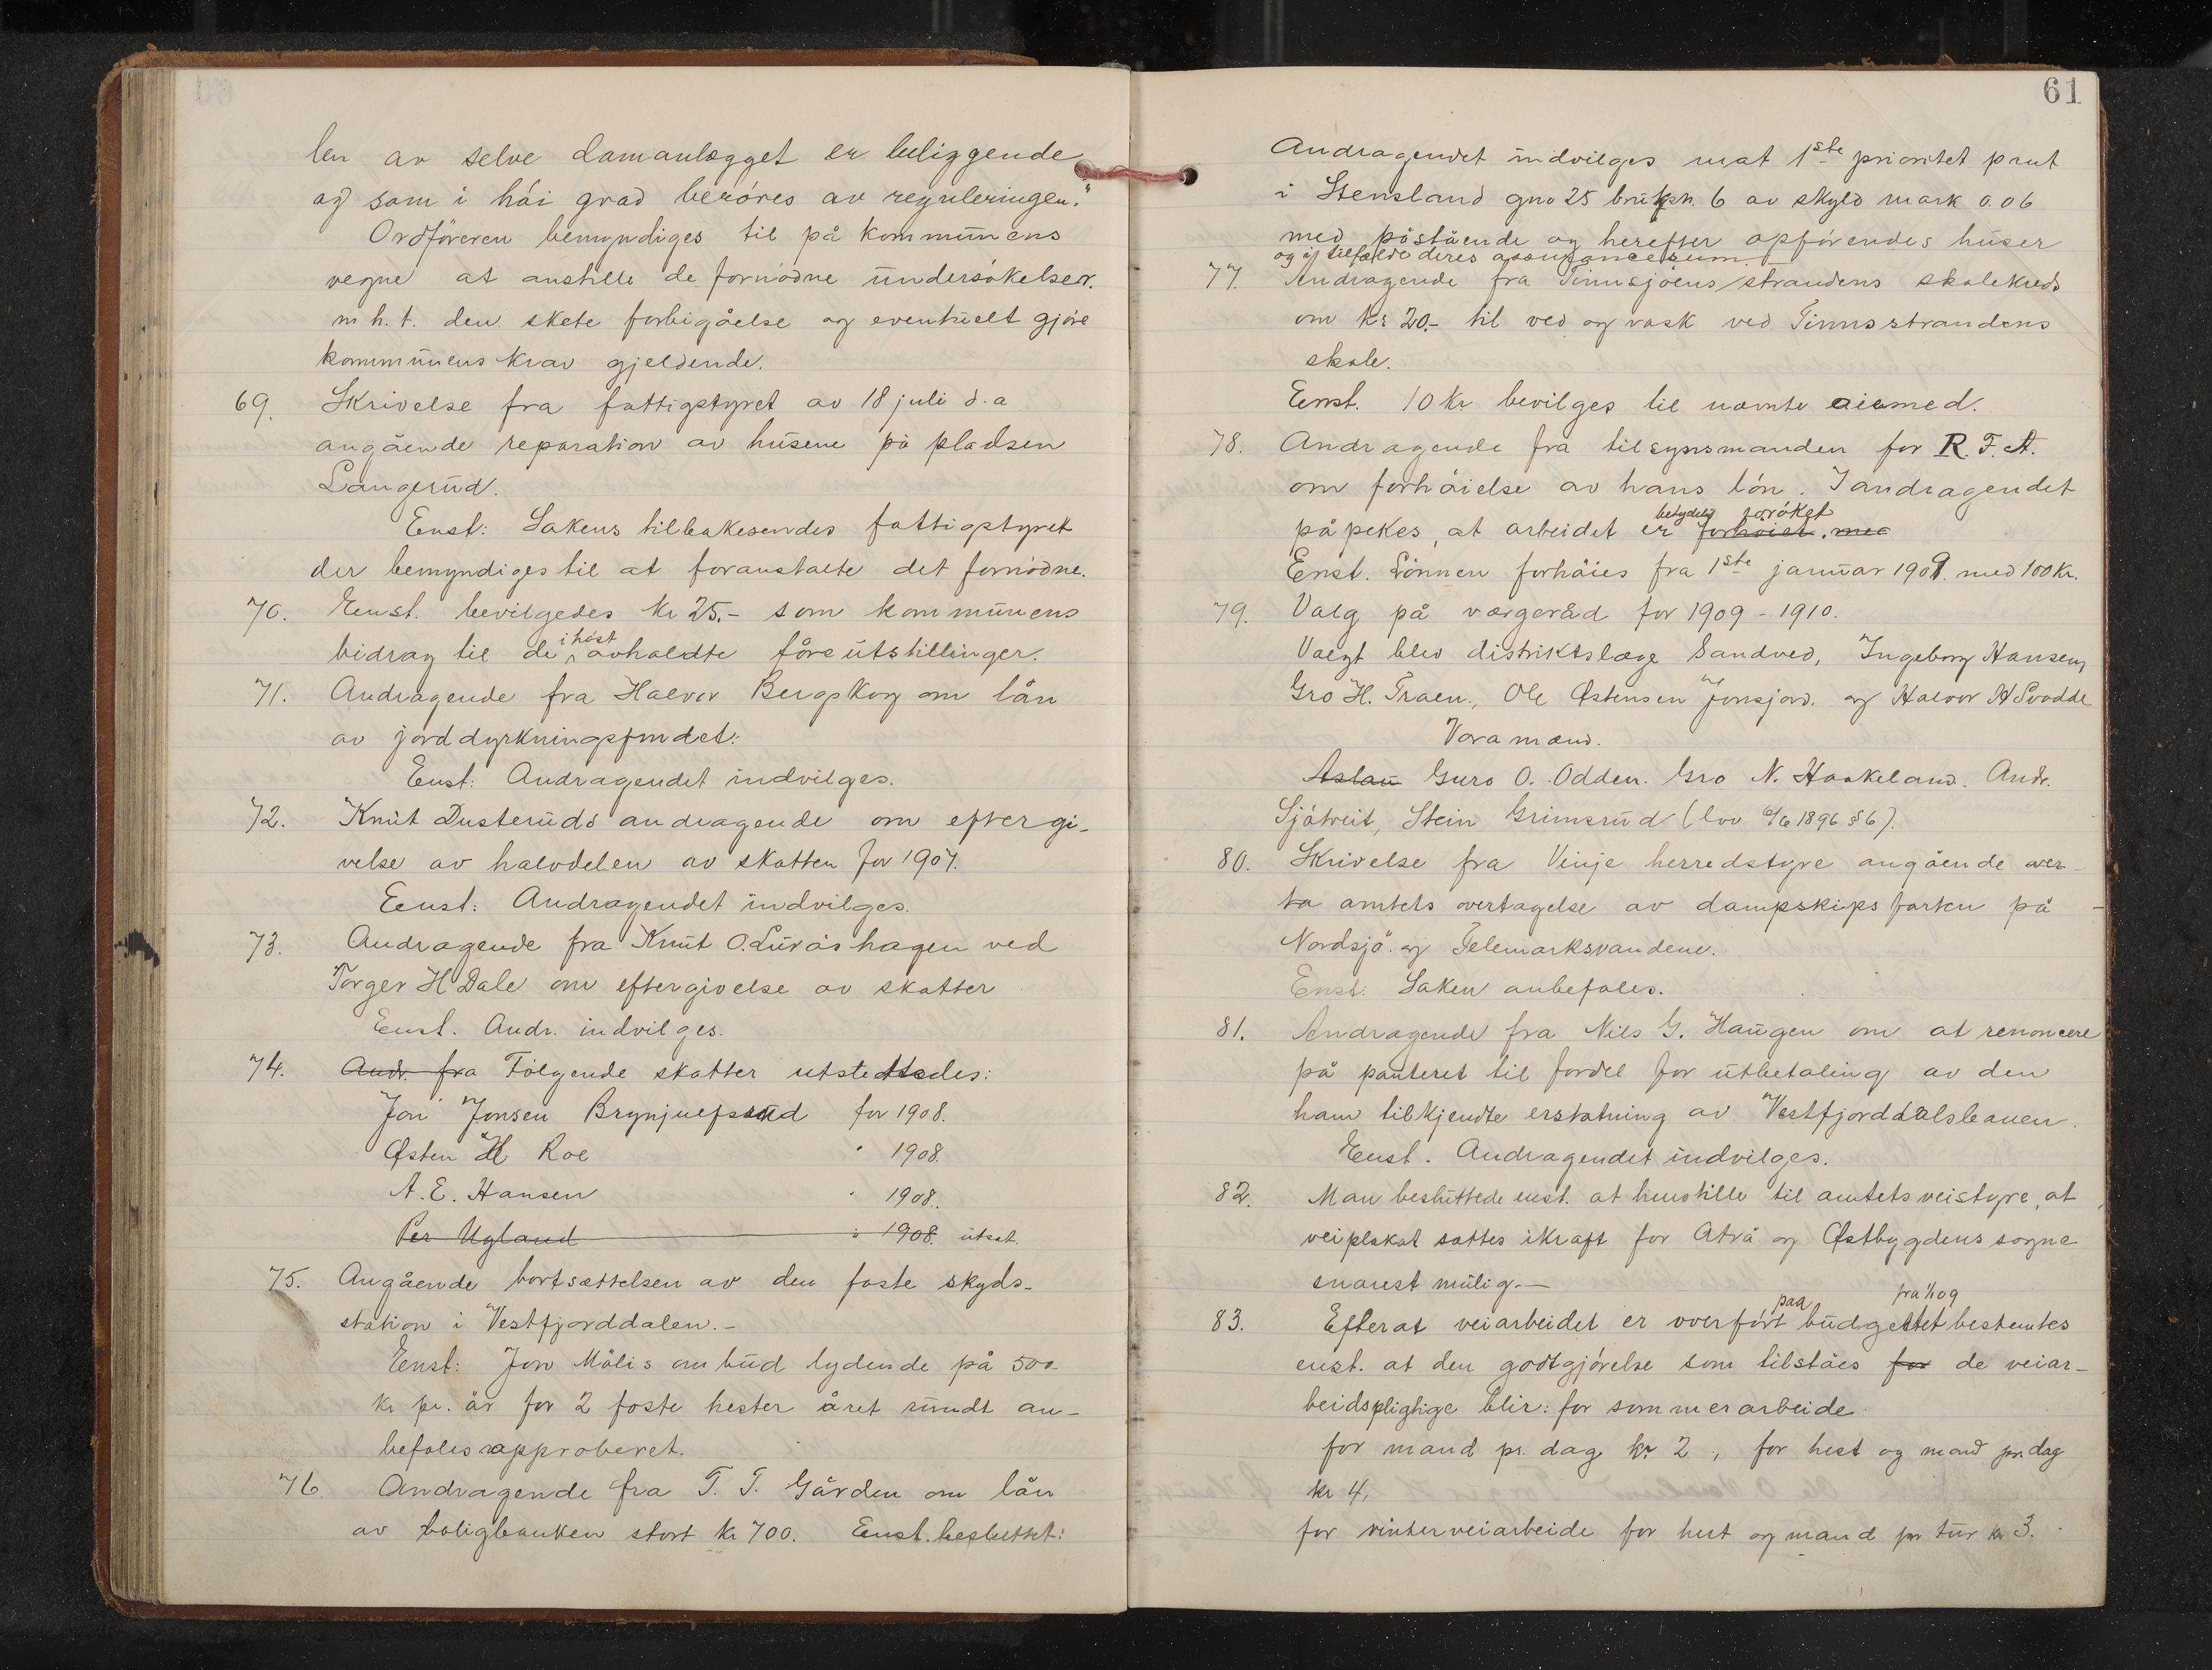 len av selve damanlægget er beliggende
og som i høi grad berøres av reguleringen."
Ordføreren bemyndiges til på kommunens
vegne at anstille de fornødne undersøkelser.
m h. t. den skete forbigåelse og eventuelt gjøre
kommunens krav gjeldende.
69. Skrivelse fra fattigstyret av 18 juli d. a
angående reparation av husene på pladsen
Langerud.
Enst: Sakens tilbakesendes fattigstyret
der bemyndiges til at foranstalte det fornødne.
70. Enst. bevilgedes kr 25.- som kommunens
i høst
bidrag til de avholdte fåreutstillinger.
71. Andragende fra Halvor Bergskog om lån
av jorddyrkningsfondet:
Enst: Andragendet indvilges.
72. Knut Dusteruds andragende om eftergi-
velse av halvdelen av skatten for 1907.
Enst: Andragendet indvilges.
73. Andragende fra Knut O. Luråshagen ved
Torger H Dale om eftergivelse av skatter
Enst. Andr. indvilges.
74. Andr. fra Følgende skatter utstedtedes:
Jon Jonsen Brynjulfsrud for 1908.
Østen H Roe " 1908.
A. E. Hansen " 1908.
Per Ugland " 1908. utsat.
75. Angående bortsættelsen av den faste skyds-
station i Vestfjorddalen.-
Enst: Jon Mælis anbud lydende på 500
kr pr. år for 2 faste hester året rundt an-
befales approberet.
76. Andragende fra T. T. Gården om lån
av boligbanken stort kr 700. Enst. besluttet:
61
Andragendet indvilges mot 1ste prioritet pant
i Stensland gno 25 bruksn. 6 av skyld mark 0.06
med påstående og herefter opførendes huser
og i tilfælde deres assurancesum.
77. Andragende fra Tinnsjøens strandens skolekreds
om kr 20.- til ved og vask ved Tinnsstrandens
skole.
Enst. 10 kr bevilges til nævnte øiemed.
78. Andragende fra tilsynsmanden for R. F. A.
om forhøielse av hans løn. I andragendet
betydelig forøket
påpekes, at arbeidet er forhøiet. med
Enst. Lønnen forhøies fra 1ste januar 1909. med 100 kr.
79. Valg på værgeråd for 1909 - 1910.
Valgt blev distriktslæge Sandved, Ingeborg Hansen,
Gro H. Traen, Ole Østensen Jonsjord. og Halvor H Svadde
Varamænd.
Aslau Guro O. Odden. Gro N. Haakeland. Andr.
Sjøtveit, Stein Grimsrud (lov 6/6 1896 § 6).
80. Skrivelse fra Vinje herredstyre angående over-
ta amtets overtagelse av dampskipsfarten på
Nordsjø. og Telemarksvandene.
Enst: Saken anbefales.
81. Andragende fra Nils G. Haugen om at renoncere
på panteret til fordel for utbetaling av den
ham tilkjendte erstatning av Vestfjorddalsbanen.
Enst. Andragendet indvilges.
82. Man besluttede enst. at henstille til amtets veistyre, at
veiplskat sættes ikraft for Atrå og Østbygdens sogne
snarest mulig.—
paa fra 1/1 09
83. Efterat veiarbeidet er overført budgettet bestemtes
enst. at den godtgjørelse som tilståes for de veiar-
beidspligtige blir: for sommerarbeide
for mand pr. dag kr 2, for hest og mand pr. dag
kr 4,
for vinterveiarbeide for hest og mand pr tur kr 3.